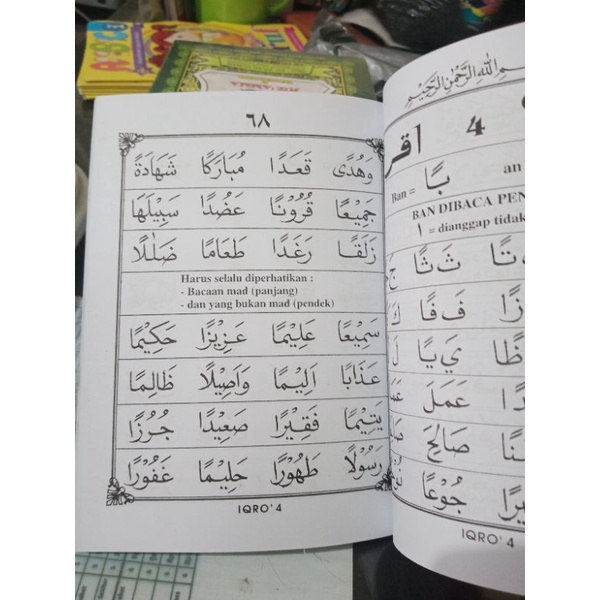 ٦٨
وَهُدًى قَعَدًا مُبَارَكًا شَهَادَةً
جَمِيْعًا قُرُوْنًا عَضُدًا سَبِيْلَهَا
زَلَقًا رَغَدًا طَعَامًا ضَلٰلًا
Harus selalu diperhatikan :
- Bacaan mad (panjang)
- dan yang bukan mad (pendek)
سَمِيْعًا عَلِيْمًا عَزِيْزًا حَكِيْمًا
عَذَابًا اَلِيْمًا وَاَصِيْلًا ظَالِمًا
يَتِيْمًا فَقِيْرًا صَعِيْدًا جُرُزًا
رَسُوْلًا طَهُوْرًا حَلِيْمًا غَفُوْرًا
IQRO' 4
اللهِ الرَّحْمٰنِ الرَّحِيْمِ
4
Ban = بًا an
BAN DIBACA PEN
ا = dianggap tidak
تًا ثَ ثًا
زًا فَ فًا
ظًا يَ يًا
عَمَلَ
صَالِحَ
جُوْعًا
IQRO' 4